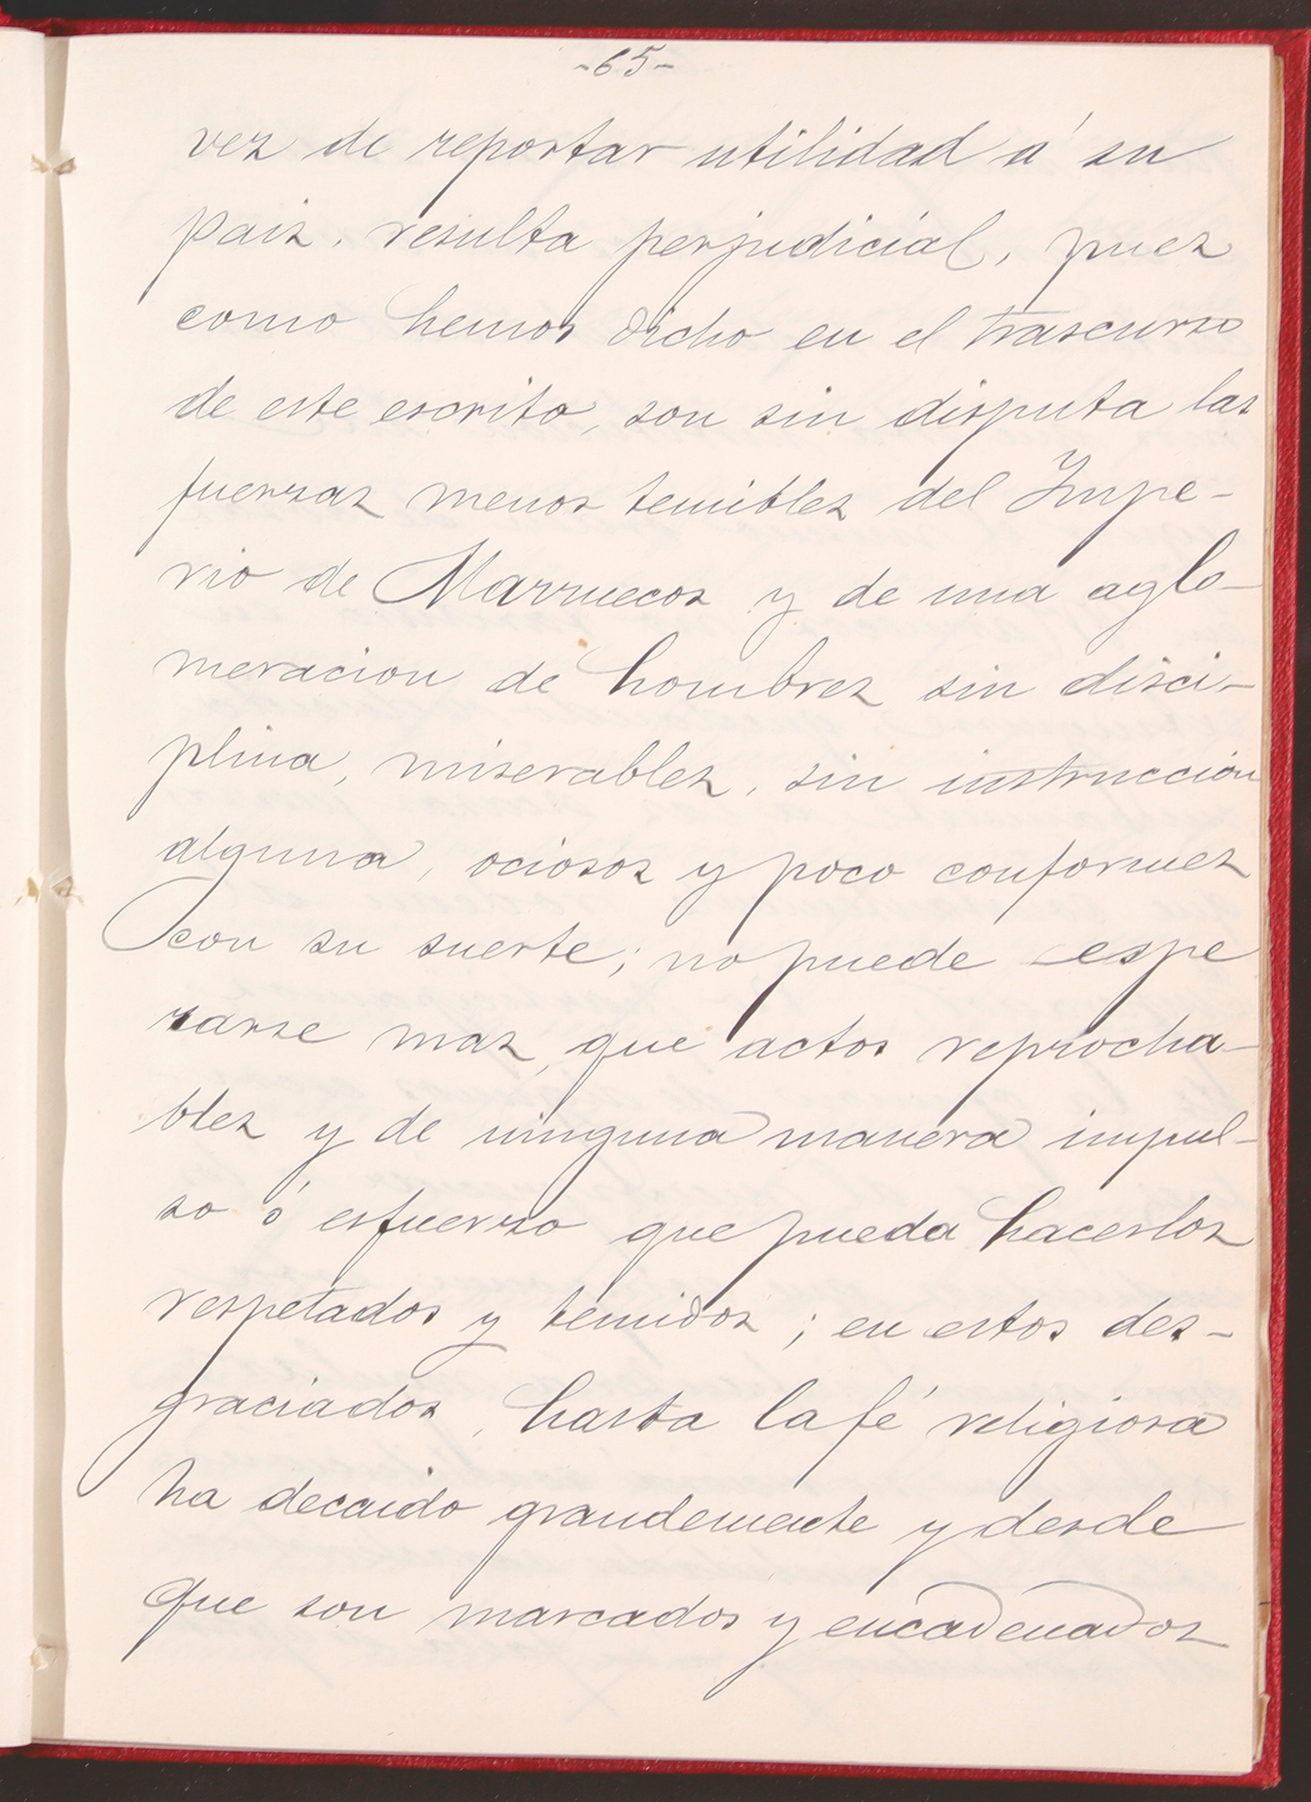 -65-
vez de reportar utilidad á su
pais, resulta perjudicial, pues
como hemos dicho en el trascurso
de este escrito, son sin disputa las
fuerzas menos temibles del Impe-
rio de Marruecos y de una aglo-
meracion de hombres sin disci-
plina, miserables, sin instruccion
alguna, ociosos y poco conformes
con su suerte; no puede espe
rarse mas, que actos reprocha-
bles y de ninguna manera impul-
so ó esfuerzo que pueda hacerlos
respetados y temidos; en estos des-
graciados, hasta la fé religiosa
ha decaido grandemente y desde
que son marcados y encadenados